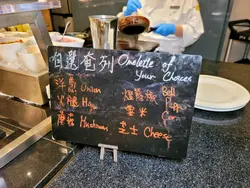 自選奄列 Omelette of
Your Choices
洋蔥 Onion
燈籠椒 Bell Pepper
火腿 Ham
粟米 Corn
蘑菇 Mushroom
芝士 Cheese